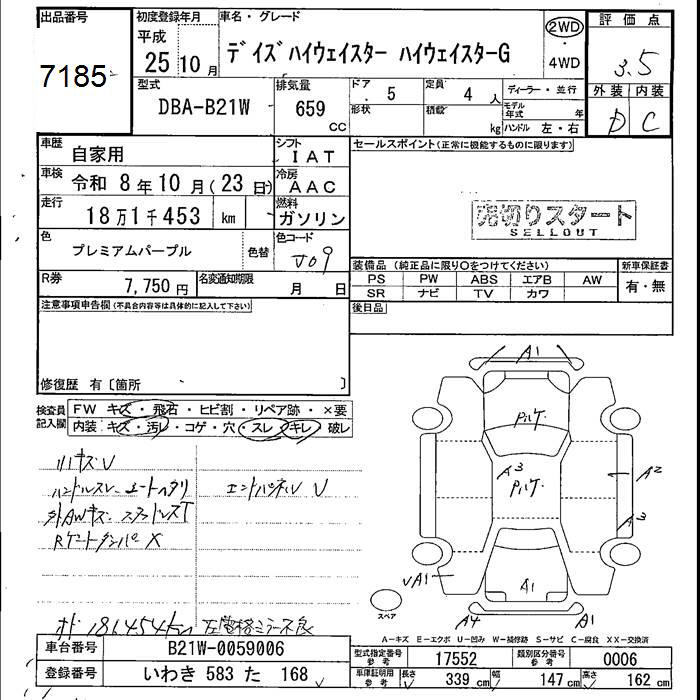 出品番号
7185
初度登録年月
平成
25 10 月
車名・グレード
デイズ ハイウェイスター ハイウェイスターG
2WD
・
4WD
評価点
3.5
外装 内装
D C
型式
DBA-B21W
排気量
659
cc
ドア
・ 5
形状
定員
4 人
積載
kg
ディーラー・並行
モデル年式 年
ハンドル 左・右
車歴
自家用
シフト
IAT
車検
令和 8年10月(23日)
冷房
AAC
走行
18万1千453 km
燃料
ガソリン
色
プレミアムパープル
色替
色コード
J09
R券
7,750円
名変通知期限
月 日
セールスポイント(正常に機能するものに限ります)
売切りスタート
SELLOUT
装備品 (純正品に限り○をつけてください)
PS PW ABS エアB AW
SR ナビ TV カワ
新車保証書
有・無
後日品
注意事項申告欄(不具合内容等は具体的に記入して下さい)
修復歴 有〔箇所 〕
検査員記入欄
FW キズ・飛石・ヒビ割・リペア跡・×要
内装 キズ・汚レ・コゲ・穴・スレ・キレ・破レ
ハンドルスレ シートヘタリ
Rゲートダンパ X
181454km 左電格ミラー不良
A1
Pルケ
A3
Pルケ
A2
A3
UA1
A1
A4
A1
スペア
A-キズ E-エクボ U-凹み W-補修跡 S-サビ C-腐食 XX-交換済
車台番号
B21W-0059006
登録番号
いわき 583 た 168
型式指定番号
参考
17552
類別区分番号
参考
0006
車庫証明用
参考
長さ
339 cm
幅
147 cm
高さ
162 cm